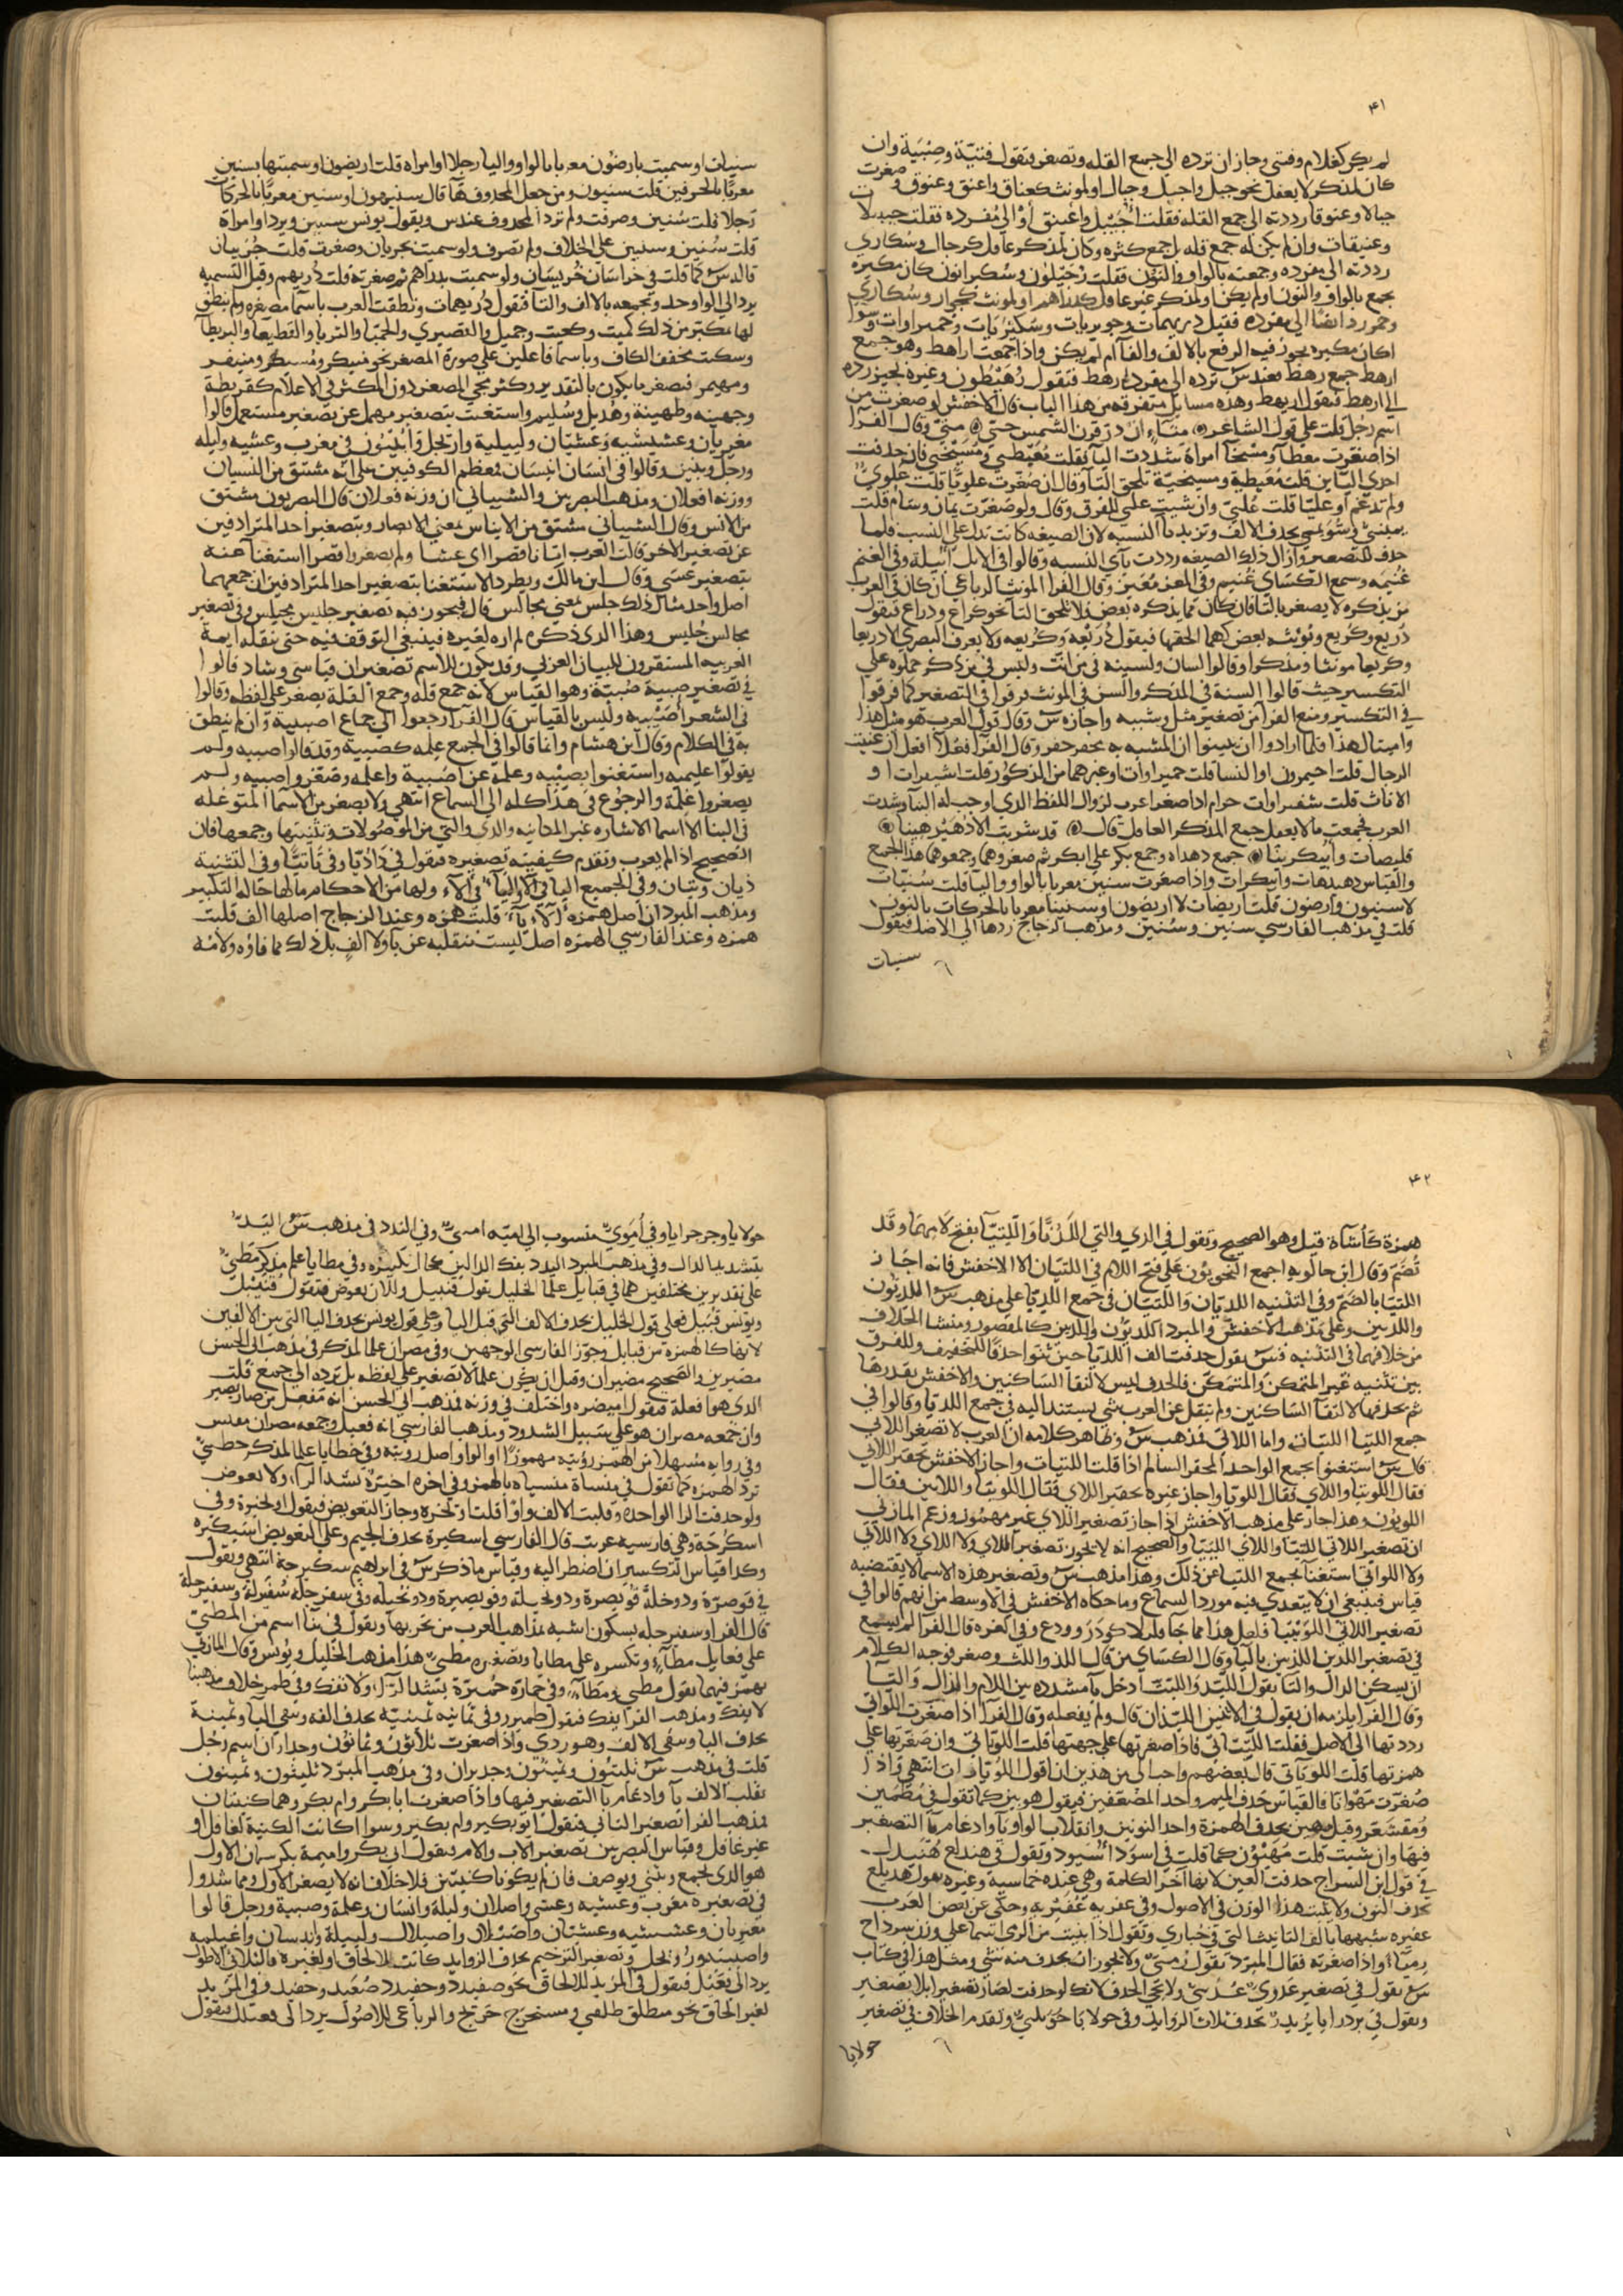 ٤١
لم يكن كغلام وفتى وجاز ان ترده الى جمع القله وتصغر فتقول فتيّة وصِبْيَة وان
كان لمذكر لا يعقل نحو جبل واجبل وجبال او لمونث كعناق واعنق وعنوق وصغرت
جبالا وعنوقا رددته الى جمع القله فقلت أجَيْبل واعَينق أوْ الى مُفرده فقلت جبيلات
وعنيقات وان لم يكن له جمع قله بل جمع كثره وكان لمذكر عاقل كرجال وسُكارى
رددته الى مفرده وجمعته بالواو والنون فقلت رُجَيْلون وسُكيرانون كان مكبره
يجمع بالواو والنون او لم يكن او لمذكر غير عاقل كدراهم او لمونث كجوار وسُكارى
وحمر رد ايضا الى مفرده فقيل دريهمات وجويريات وسكيرَيات وحميراوات وسوا
اكان مكبره يجوز فيه الرفع بالالف والتا ام لم يكن واذا جمعت اراهط وهو جمع
ارهط جمع رهط فعند س ترده الى مفرده رهط فتقول رُهَيْطون وغيره يجيز رده
الى ارهط فتقول اريهط وهذه مسايل متفرقه من هذا الباب قال الاخفش لو صغرت من
اسم رجل قلت على قول الشاعر منَآءٍ ان ذر قرن الشمس حتى منىّ وقال الفرا
اذا صغرت معطاً ومسْتحياً امراة شددت اليا فقلت مُعَيْطي ومُسَيْحي فان حذفت
احدى الياين قلت مُعَيطية ومسيحيّة تلحق التا وقال ان صُغّرت علويًّا قلت عُلَويّ
ولم تدغم او عليّا قلت عُلَيّ وان شيت عليي للفرق وقال ولو صغرت يمان وشام قلت
يميني وشويمي بحذف الالف وتزيد يا النسبه لان الصيغه كانت تدل على النسب فلما
حذف للتصغير وازال ذلك الصيغه رددت يآى النسبه وقالوا في الابل ابيلة وفي الغنم
غُنيمَه وسمع الكسَاي غُنيم وفي المعز مُعَيز وقال الفرا المونث الرباعي ان كان في العرب
من يذكره لا يصغر بالتا فان كان مما يذكره بعض فلا تلحق التا نحو كراع وذراع فتقول
ذريّع وكريّع ونوثه بعض كهما الحقها فيقول ذُريّعه وكُريعه ولا يعرف البصري الا ذريعا
وكريعا مونثا ومذكرا وقالوا لسان ولسينه في من انث ولسين في من ذكر حملوه على
التكسير حيث قالوا السنة في المذكر والسن في المونث فرقوا في التصغير كما فرقوا
في التكسير ومنع الفرا من تصغير مثل وشبيه واجازه س وقال قول العرب هو مثيل هذا
واميثال هذا فلما ارادوا ان يبينوا ان المشبه به يحقر حقر وقال الفرا فعُلا افعل ان عنيت
الرجال قلت احيمرون او النسا قلت حميراوات او غيرهما من الذكور قلت اشيقرات او
الاناث قلت شقيراوات حرام اذا صغرا عرب لزوال اللفظ الذي اوجب له البنا وشذت
العرب فجمعت ما لا يعقل جمع المذكر العاقل قال قد شربت الا دُهَيْدِهينا
قليصات وأُبيكرينا جمع دهداه وجمع بكر على ابكر ثم صغروهما وجمعوهما هذا الجمع
والقياس دهيدهات وابيكرات واذا صغرت سنين معربا بالواو واليا قلت سُنيّات
لا سنيون وارضون قلت اريضات لا اريضون او سنينا معربا بالحركات بالنون
قلت في مذهب الفارسي سنين وسُنيّن ومذهب الزجاج ردها الى الاصل فيقول
سنيات
سنيات او سميت بارضُون معربا بالواو واليا رجلا او امراة قلت اريضون او سميتها بسنين
معربًا بالحرفين قلت سنيون ومن جعل المحذوف هآ قال سنيهون او سنين معربًا بالحركات
رجلا قلت سُنين وصرفت ولم ترد المحذوف عند س ويقول يونس سنيين ويرد او امراة
قلت سُنين وسنيين على الخلاف ولم تصرف ولو سميت بجربان وصغرت قلت جُريبان
قاله س كما قلت في خراسان خُريسَان ولو سميت بدراهم ثم صغرته قلت دُريهم وقبل التسميه
يرد الى الواحد وتجمعه بالالف والتا فتقول دُريهمات ونطقت العرب باسما مصغره ولم ينطق
لها بمكبر من ذلك كميت وكعيت وجميل والقصيري والحميّا والثريا والقطيعا والمريطآ
وسكيت مخفف الكاف وباسما فاعلين على صورة المصغر نحو مبيطر ومُسيطر ومبيقر
ومهيمن فتصغيرها يكون بالتقدير وكثر مجي المصغر دون المكبر في الاعلام كقريظة
وجهينة وطهينة وهُذيل وسُليم واستغنت بتصغير مهمل عن تصغير مستعمل قالوا
مغربان وعشيشيه وعشيّان ولييلية ورويجل وأُبينون في مغرب وعشيه وليله
ورجل وبنين وقالوا في انسان انيسيان فمعظم الكوفيين على انه مشتق من النسيان
ووزنه افعلان ومذهب البصريين والشيباني ان وزنه فعلان قال البصريون مشتق
من الانس وقال الشيباني مشتق من الايناس بمعنى الابصار وبتصغير احد المترادفين
عن تصغير الاخر قالت العرب اتانا قصرا اي عشيا ولم يصغروا قصرا استغنآ عنه
بتصغير عشى وقال ابن مالك ويطرد الاستغنا بتصغير احد المترادفين ان جمعهما
اصل واحد مثال ذلك جلس بمعنى مجالس قال فيجوز فيه تصغير جليس مجيلس وفي تصغير
مجالس جُليس وهذا الذي ذكره لم اره لغيره فينبغي التوقف فيه حتى ينقله ايمة
العربيه المستقرون للبيان العربي وقد يكون للاسم تصغيران قياسي وشاذ قالوا
في تصغير صبية صُبيّة وهو القياس لانه جمع قله وجمع القلة يصغر على لفظه وقالوا
في الشعر أُصَيْبيه وليس بالقياس قال الفرا رجعوا الى جماع اصبية وان لم ينطق
به في الكلام وقال ابن هشام وانما قالوا في الجمع غلمه كصبية وقد قالوا اصيبيه ولم
يقولوا اغيلمه واستغنوا بصِبْيه وغلمة عن اصبية واغلمه وصغروا اصبيه ولم
يصغروا غلمة والرجوع في هذا كله الى السماع انتهى ولا يصغر من الاسما المتوغله
في البنا الا اسما الاشاره غير المكانيه والذي والتي من الموصولات وتثنيتها وجمعها فان
الصحيح اذا لم يعرب وتقدم كيفيته تصغيره فيقول في ذا ذيّا وفي تا تيّا وفي التثنية
ذيان وتيان وفي الجميع اليا في الاوليا في آلاء ولها من الاحكام مالها حاله التكبير
ومذهب المبرد ان اصل همزه الاء يآء قلبت همزه وعند الزجاج اصلها الف قلبت
همزه وعند الفارسي الهمزه اصل ليست منقلبه عن يآ ولا الف بل ذلك مما فاؤه ولامه
٤٢
همزة كأشآة قيل وهو الصحيح وتقول في الذي والتي اللَذيّا واللّتيّا بفتح لاميهما وقد
تُضَم وقال ابن خالويه اجمع النحويون على فتح اللام في اللتيّان الا الاخفش فانه اجاز
اللتيا بالضم وفي التثنيه اللذيان واللتيّان في جمع اللذيا على مذهب س اللذيون
واللذيين وعلى مذهب الاخفش والمبرد اللذيَون واللذيين كالمقصور ومنشا الخلاف
من خلافهما في التثنيه فس يقول حذفت الف اللذيا حين ثنوا حذفا للتخفيف وللفرق
بين تثنيه غير المتمكن والمتمكن فالحذف ليس لالتقا الساكنين والاخفش يقدرها
ثم يحذفها لالتقآ الساكنين ولم ينقل عن العرب شي يستند اليه في جمع اللذيا وقالوا في
جمع اللتيا اللتيات واما اللاتي فمذهب س وظاهر كلامه ان العرب لا تصغر اللاتي
قال س استغنوا بجمع الواحد المحقر السالم اذا قلت اللتيات واجاز الاخفش تحقير اللاتي
فقال اللويتا واللاي فقال اللويا واجاز غيره تحقير اللاي فقال اللويئا واللاين فقال
اللويئون وهذا جار على مذهب الاخفش اذ اجاز تصغير اللاي غير مهموز وزعم المازني
ان تصغير اللاتي اللتيا واللاي الليّيا والصحيح انه لا يجوز تصغير اللاي ولا اللاي ولا اللاتي
ولا اللواتي استغنآ بجمع اللتيا عن ذلك وهذا مذهب س وتصغير هذه الاسما لا يقتضيه
قياس فينبغي ان لا يتعدى فيه مورد السماع وما حكاه الاخفش في الاوسط من انهم قالوا في
تصغير اللاتي اللوَيْتيا قليل هذا مما جا مثله لا كوذر وودع وفي الغره قال الفرا لم يسمع
في تصغير اللذين اللذيين باليا وقال الكساي من قال اللذ واللت وصغر فوجه الكلام
ان يسكن الذال والتا يقول اللَيّد واللّيَت ادخل يا مشدده بين اللام والذال والتا
وقال الفرا يلزمه ان يقول في الاثنين الليّذان قال ولم يفعله وقال الفرا اذا صغرت اللواتي
رددتها الى الاصل فقلت اللتيّاتي فاذا صغرتها على جهتها قلت اللويّاتي وان صغرتها على
همزتها قلت اللويآتي قال بعضهم واحب الي من هذين ان اقول اللويات انتهى واذا
صُغرت مَهْوانا فالقياس حذف الميم واحد المضعفين فيقول هوين كما تقول في مطمئن
ومُقشعر وقيل مهين بحذف الهمزة واحد النونين وانقلاب الواو يا وادغام يآ التصغير
فيها وان شيت قلت مُهَيْون كما قلت في اسود اُسَيود وتقول في هندلع هُنَيدل
في قول ابن السراج حذفت العين لانها آخر الكلمة وهي عنده خماسية وغيره يقول هديلع
بحذف النون ولا يثبت هذا الوزن في الاصول وفي عفريه عُفَيْريه وحكى عن بعض العرب
عفيره شبهها بالف التانيث التي في حباري وتقول اذا بنيت من الرمي اسما على وزن سرداح
رميآء واذا صغرته فقال المبرد تقول رُميّي ولا يجوز ان يحذف منه شي ومثل هذا في كتاب
س تقول في تصغير عَدَويّ عُدَيّي ولا يجي الحذف لانك لو حذفت لصار تصغيرا بلا تصغير
وتقول في بردرايا بُريدر تحذف ثلاث الزوايد وفي حولايا حُوَيليّ وتقدم الخلاف في تصغير
حولايا
حولايا وجرجرايا وفي أموَيّ منسوب الى اميّه اميّيّ وفي الندد في مذهب س اليدّ
بتشديد الدال وفي مذهب المبرد اليدد بفك الدالين كحال تكبيره وفي مطايا علم مذكر مُطَيّ
على تقديرين مختلفين هما في قبايل علما الخليل يقول قبيبل واللان يعوض فيقول قُبَيّل
ويونس قُبيّل فعلى قول الخليل يحذف الالف التي قبل اليا وعلى قول يونس يحذف اليا التي بين الالفين
لانها كالهمزة من قبايل وجوّز الفارسي الوجهين وفي مصران علما لمذكر في مذهب ابى الحسن
مصيرين والصحيح مصيران وقيل ان يكون علما لا تصغير على لفظه بل يرده الى جمع قلت
الذي هو افعلة فيقول امَيصره واختلف في وزنه فمذهب ابي الحسن انه مَفعل من صار يصير
وان جمعه مصران هو على سبيل الشذوذ ومذهب الفارسي انه فعيل وجمعه مصران مقيس
وفي روايه مُسهلا من الهمز رؤيّه مهموزًا او الواو اصل رويّه وفي خطايا علما لمذكر حطَيّئ
ترد الهمزه كما تقول في منساة منيسياه بالهمز وفي اخره اخيّرة تشدد الرآ ولا يعوض
ولو حذفت الرا الواحدة وقلبت الالف واوا قلت وخيره وجاز التعويض فيقول اوخيرة وفي
اسكرجة وهي فارسيه عربت قال الفارسي اسيكرة بحذف الجيم وعلى التعويض اسَيكيره
وكذا قياس التكسير ان اضطر اليه وقياس ماذكر س في ابراهيم سكيرجة انتهى وتقول
في قوصرّة ودوخلّة قُوَيصرة ودويخلة وقويصيرة ودويخيله وفي سفرجلة سُفيرلة وسفيرجلة
قال الفرا وسفيرجله بسكون اشبه بمذاهب العرب من تحريكها وتقول في بنا اسم من المطيّ
على فعايل مطآء وتكسره على مطايا وتصغره مطيّ هذا مذهب الخليل ويونس وقال المازني
بهمز فيهما تقول مطيئ ومطآ وفي حمارّه حُميرّة بتشديد الرآ ولا تفك وفي طمر خلاف مذهبنا
لا يفك ومذهب الفرا يفك فيقول طميرر وفي ثمانيه ثمينيّه بحذف الفه وتبقى اليا وثمينة
بحذف اليا وتبقى الالف وهو ردي واذا صغرت ثلاثون وثمانون وجداران اسم رجل
قلت في مذهب س ثُليثون وثُمينون وجديران وفي مذهب المبرد ثليّثون وثميّنون
تقلب الالف يآ وادغام يا التصغير فيها واذا صغرت ابا بكر وام بكر وهما كنيتان
فمذهب الفرا تصغير الثاني فتقول ابو بكير وام بكير وسوا اكانت الكنية لعاقل او
غير عاقل وقياس البصريين تصغير الاب والام فيقول ابي بكر واميمة بكر لان الاول
هو الذي يجمع ويثنى ويوصف فان لم يكونا كنيتين فلا خلاف انه لا يصغر الاول ومما شذوا
في تصغيره مغرب وعشيه وعشى واصلان وليلة وانسان وغلمة وصبية ورجل قالوا
مغيربان وعشيشيه وعشيّان واصَيْلان واصيلال ولييلية وانيسيان واغيلمه
واصيبيه ورويجل وتصغير الترخيم بحذف الزوايد كانت للالحاق او لغيره فالثلاثي الاصول
يرد الى فُعَيل فيقول في المزيد للالحاق نحو صفيدد وحفيدد صُعَيد وحفيد وفي المزيد
لغير الحاق نحو منطلق طُليق ومستخرج خريج والرباعي للاصول يرد الى فُعيعل فيقول